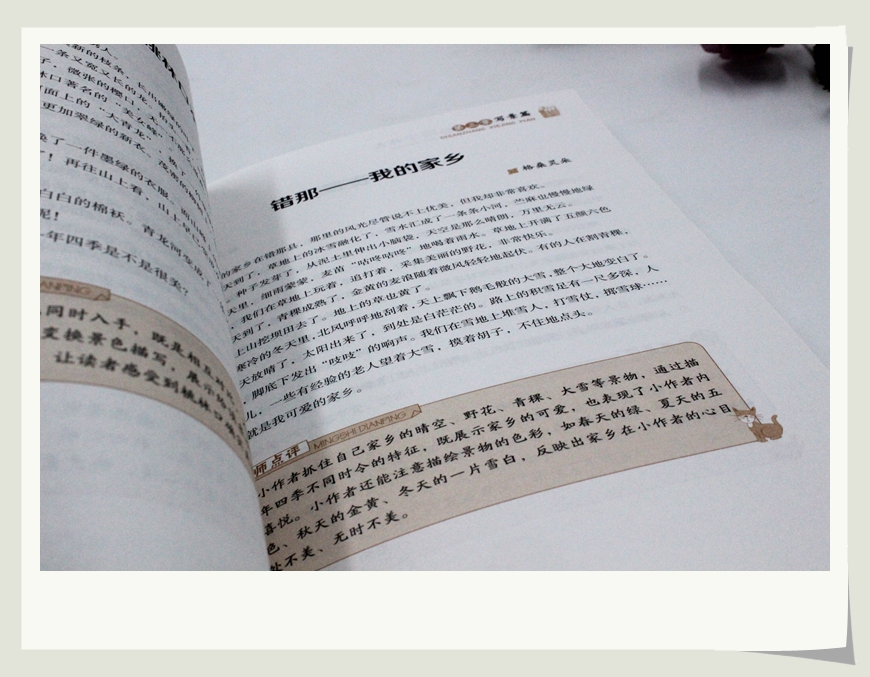 新的枝条，
一条又宽又长的龙，
子，微张的樱口，
林口著名的“美女峰”
面上的“大青龙”，
更加翠绿的新衣，
换了一件墨绿的衣服，
了！再往山上看，山上
白白的棉袄。青龙河变成了
呢！
年四季是不是很美？
同时入手，既是
变换景色描写，展示
让读者感受到桃林口
写景篇
错那——我的家乡
格桑旦朵
的家乡在错那县，那里的风光尽管说不上优美，但我却非常喜欢。
天到了，草地上的冰雪融化了，雪水汇成了一条条小河，芝麻也慢慢地绿
，种子发芽了，从泥土里伸出小脑袋，天空是那么晴朗，万里无云。
天里，细雨蒙蒙，麦苗“咕咚咕咚”地喝着雨水。草地上开满了五颜六色
，我们在草地上玩着，追打着，采集美丽的野花，非常快乐。
天到了，青稞成熟了，金黄的麦浪随着微风轻轻地起伏。有的人在割青稞，
上山挖坝田去了。地上的草也黄了。
寒冷的冬天里，北风呼呼地刮着，天上飘下鹅毛般的大雪，整个大地变白了。
天放晴了，太阳出来了，到处是白茫茫的。路上的积雪足有一尺多深，人
，脚底下发出“吱吱”的响声。我们在雪地上堆雪人，打雪仗，掷雪球……
儿，一些有经验的老人望着大雪，摸着胡子，不住地点头。
就是我可爱的家乡。
师点评 MINGSHI DIANPING
小作者抓住自己家乡的晴空、野花、青稞、大雪等景物，通过描
年四季不同时令的特征，既展示家乡的可爱，也表现了小作者内
喜悦。小作者还能注意描绘景物的色彩，如春天的绿、夏天的五
色、秋天的金黄、冬天的一片雪白，反映出家乡在小作者的心目
处不美、无时不美。